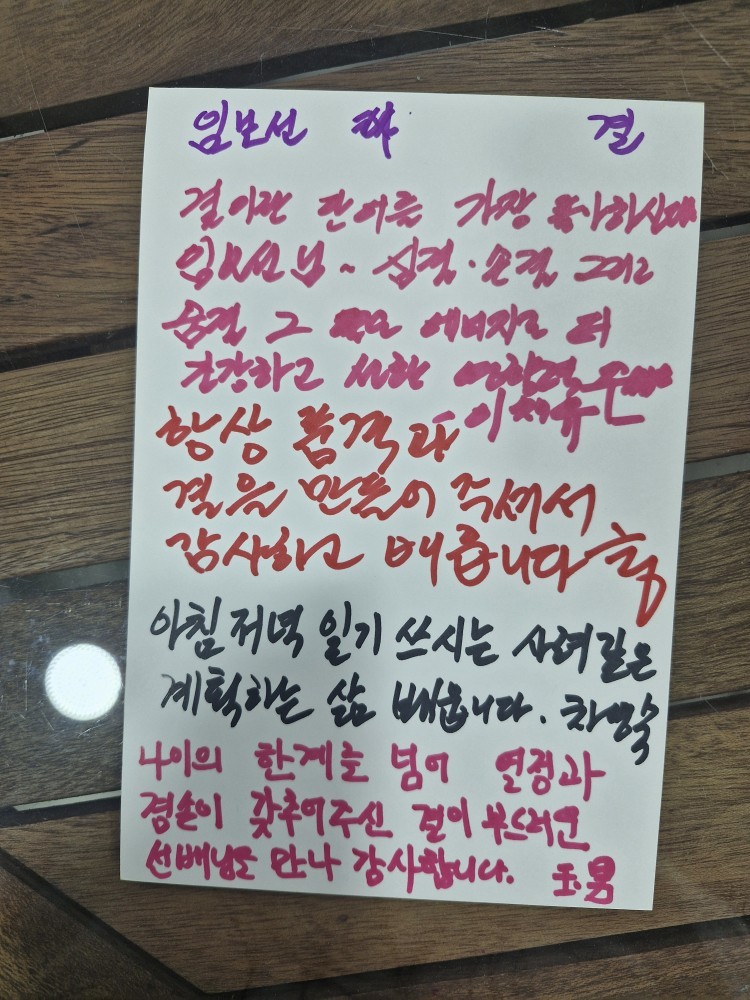 임보선 결
결이란 단어를 가장 좋아하신다
임보선님~ 십결·손결 그리고
숨결 그 에너지로 더
건강하고 선한
항상 품격과
결을 만들어 주셔서
감사하고 배웁니다
아침 저녁 일기 쓰시는 사려깊은
계획하는 삶 배웁니다. 차영숙
나이의 한계를 넘어 열정과
겸손이 갖추어주신 결이 부드러운
선배님을 만나 감사합니다. 玉男